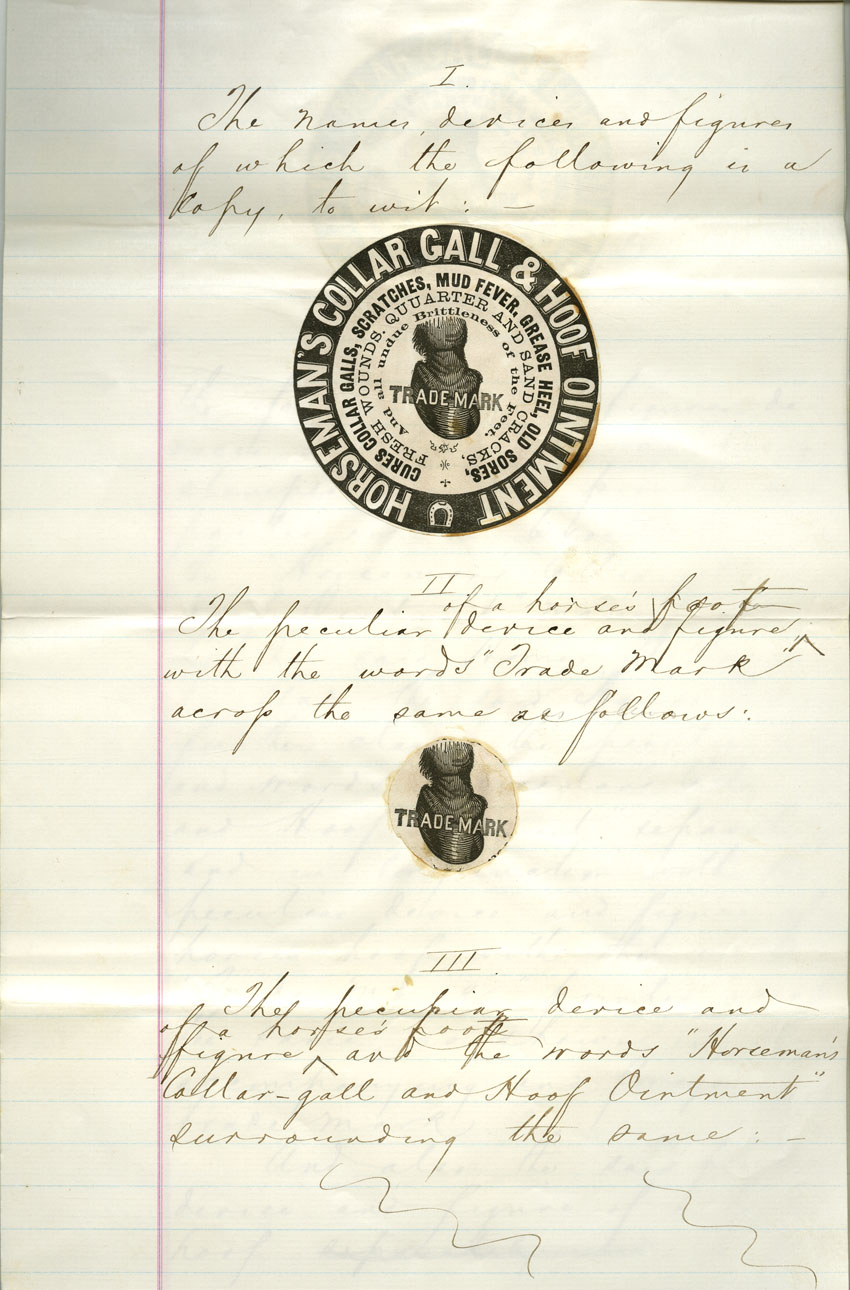 I.
The names, devices and figures
of which the following is a
copy, to wit: —
HORSEMAN'S COLLAR GALL & HOOF OINTMENT
CURES COLLAR GALLS, SCRATCHES, MUD FEVER, GREASE HEEL, OLD SORES,
FRESH WOUNDS. QUUARTER AND SAND CRACKS,
And all undue Brittleness of the Feet.
TRADE MARK
II
of a horse's foot
The peculiar device and figure
with the words "Trade Mark"
across the same as follows:
TRADE MARK
III.
The peculiar device and
of a horse's foot
figure and the words "Horseman's
Collar-gall and Hoof Ointment"
surrounding the same: —